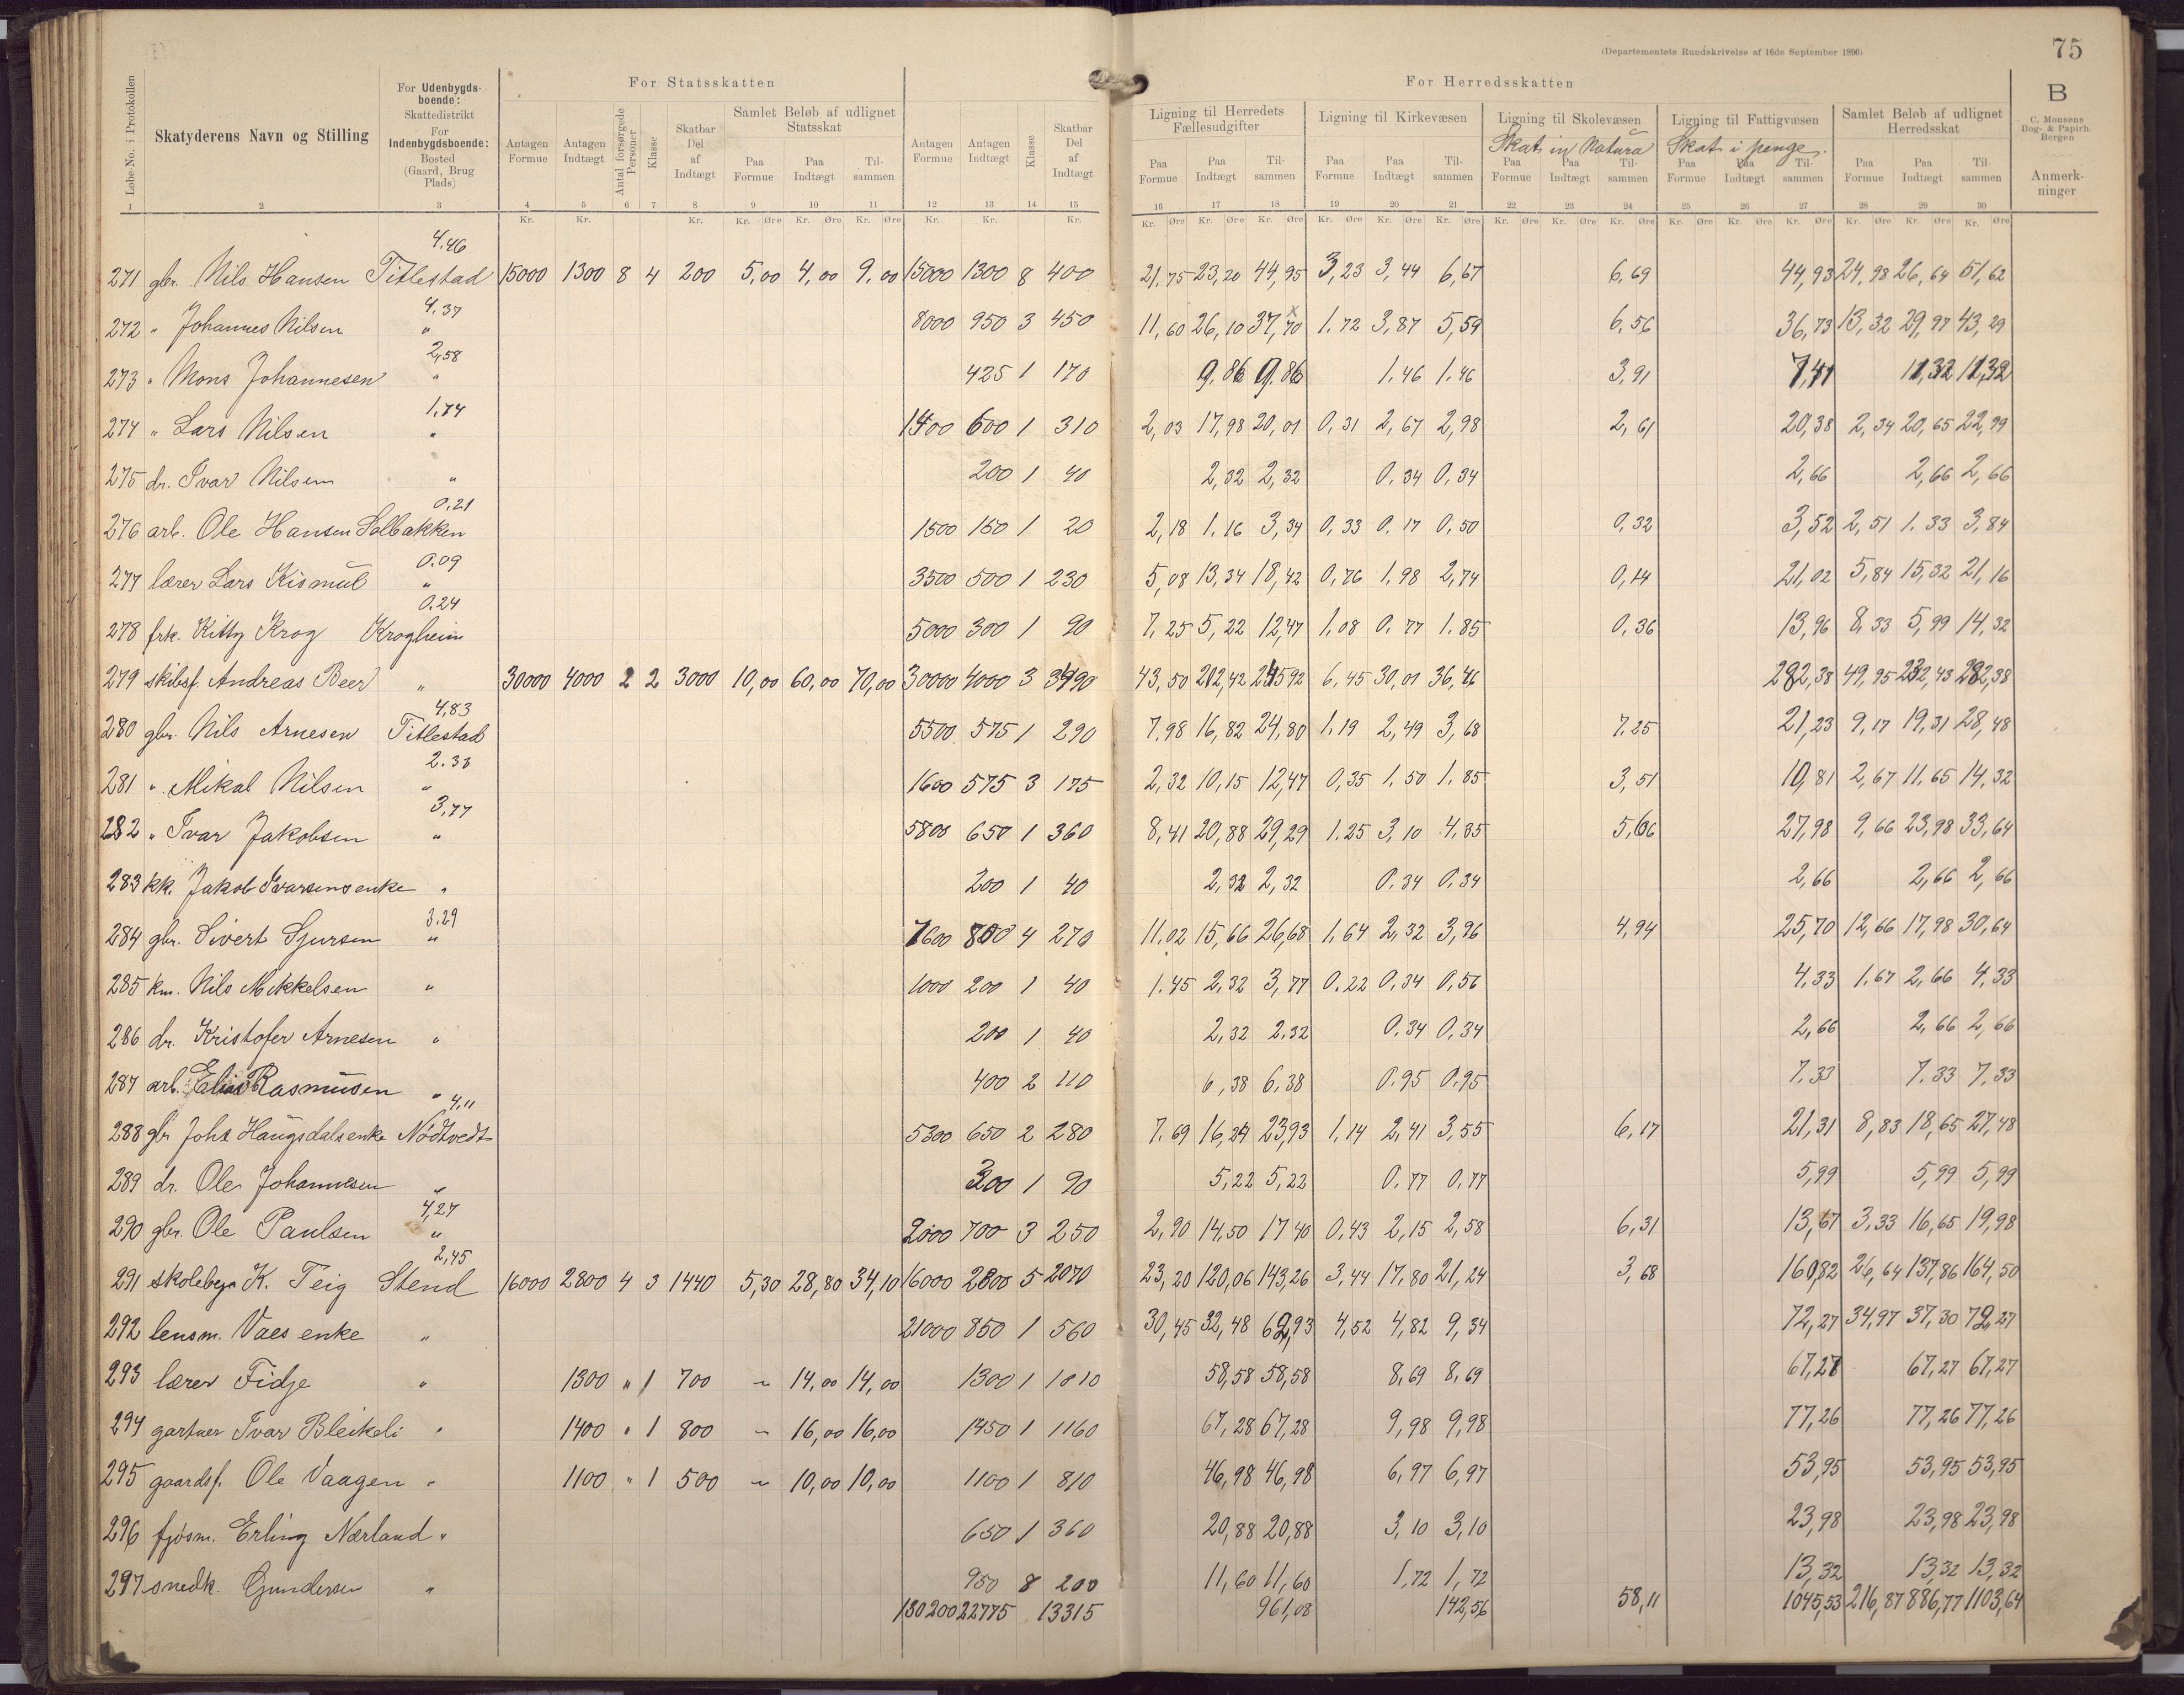 (Departementets Rundskrivelse af 16de September 1896)
75
For Statsskatten
For Herredsskatten
B
C. Monsens Bog- & Papirh. Bergen
Løbe-No. i Protokollen
Skatyderens Navn og Stilling
For Udenbygdsboende: Skattedistrikt For Indenbygdsboende: Bosted (Gaard, Brug Plads)
Antagen Formue
Antagen Indtægt
Antal forsørgede Personer
Klasse
Skatbar Del af Indtægt
Samlet Beløb af udlignet Statsskat
Paa Formue Paa Indtægt Tilsammen
Antagen Formue
Antagen Indtægt
Klasse
Skatbar Del af Indtægt
Ligning til Herredets Fællesudgifter
Paa Formue Paa Indtægt Tilsammen
Ligning til Kirkevæsen
Paa Formue Paa Indtægt Tilsammen
Ligning til Skolevæsen
Skat in Natura
Paa Formue Paa Indtægt Tilsammen
Ligning til Fattigvæsen
Skat i penge.
Paa Formue Paa Indtægt Tilsammen
Samlet Beløb af udlignet Herredsskat
Paa Formue Paa Indtægt Tilsammen
Anmerkninger
1 2 3 4 5 6 7 8 9 10 11 12 13 14 15 16 17 18 19 20 21 22 23 24 25 26 27 28 29 30
Kr. Kr. Kr. Kr. Øre Kr. Øre Kr. Øre Kr. Kr. Kr. Kr. Øre Kr. Øre Kr. Øre Kr. Øre Kr. Øre Kr. Øre Kr. Øre Kr. Øre Kr. Øre Kr. Øre Kr. Øre Kr. Øre Kr. Øre Kr. Øre Kr. Øre
4,46
271 gbr. Nils Hansen Titlestad 15000 1300 8 4 200 5,00 4,00 9,00 15000 1300 8 400 21,75 23,20 44,95 3,23 3,44 6,67 6,69 44,93 24,98 26,64 51,62
4,37
272 " Johannes Nilsen " 8000 950 3 450 11,60 26,10 37,70 1.72 3,87 5,59 6,56 36,73 13,32 29,97 43,29
2,58
273 " Mons Johannesen " 425 1 170 9,86 9,86 1.46 1.46 3,91 7,41 11,32 11,32
1,74
274 " Lars Nilsen " 1400 600 1 310 2,03 17,98 20,01 0,31 2,67 2,98 2,61 20,38 2,34 20,65 22,99
275 dr. Ivar Nilsen " 200 1 40 2,32 2,32 0,34 0,34 2,66 2,66 2,66
0,21
276 arb. Ole Hansen Solbakken 1500 150 1 20 2,18 1.16 3,34 0,33 0,17 0,50 0,32 3,52 2,51 1.33 3,84
0.09
277 lærer Lars Kismul " 3500 500 1 230 5,08 13,34 18,42 0,76 1,98 2,74 0,14 21,02 5,84 15,32 21,16
0.24
278 frk. Kitty Krog Krogheim 5000 300 1 90 7,25 5,22 12,47 1,08 0,77 1.85 0,36 13,96 8,33 5,99 14,32
279 skibsf. Andreas Beer " 30000 4000 2 2 3000 10,00 60,00 70,00 30000 4000 3 3490 43,50 202,42 245,92 6,45 30,01 36,46 282,38 49,95 232,43 282,38
4,83
280 gbr. Nils Arnesen Titlestad 5500 575 1 290 7,98 16,82 24,80 1,19 2,49 3,68 7,25 21,23 9,17 19,31 28,48
2.33
281 " Mikal Nilsen " 1600 575 3 175 2,32 10,15 12,47 0,35 1,50 1.85 3,51 10,81 2,67 11,65 14,32
3,77
282 " Ivar Jakobsen " 5800 650 1 360 8,41 20,88 29,29 1.25 3,10 4,35 5,66 27,98 9,66 23,98 33,64
283 kk. Jakob Ivarsens enke " 200 1 40 2,32 2,32 0.34 0,34 2,66 2,66 2,66
3.29
284 gbr. Sivert Sjursen " 7600 800 4 270 11.02 15,66 26,68 1,64 2,32 3,96 4,94 25,70 12,66 17,98 30,64
285 km. Nils Mikkelsen " 1000 200 1 40 1.45 2,32 3,77 0.22 0,34 0,56 4,33 1.67 2,66 4,33
286 dr. Kristofer Arnesen " 200 1 40 2,32 2,32 0,34 0,34 2,66 2,66 2,66
287 arb. Elias Rasmusen " 400 2 110 6,38 6,38 0,95 0,95 7.33 7.33 7,33
4,11
288 gbr Johs Haugsdals enke Nødtvedt 5300 650 2 280 7.69 16,24 23,93 1,14 2,41 3,55 6,17 21,31 8,83 18,65 27,48
289 dr. Ole Johannesen " 300 1 90 5,22 5,22 0,77 0,77 5,99 5,99 5,99
4,27
290 gbr. Ole Paulsen " 2000 700 3 250 2,90 14,50 17,40 0,43 2,15 2,58 6,31 13,67 3,33 16,65 19,98
2,45
291 skolebest. K. Teig Stend 16000 2800 4 3 1440 5,30 28,80 34,10 16000 2800 5 2070 23,20 120,06 143,26 3,44 17,80 21,24 3,68 160,82 26,64 137,86 164,50
292 lensm. Vaes enke " 21000 850 1 560 30,45 32,48 62,93 4,52 4,82 9,34 72,27 34,97 37,30 72,27
293 lærer Fidje " 1300 " 1 700 ~ 14,00 14,00 1300 1 1010 58,58 58,58 8,69 8,69 67,27 67,27 67,27
294 gartner Ivar Bleikeli " 1400 " 1 800 ~ 16,00 16,00 1450 1 1160 67,28 67,28 9,98 9,98 77,26 77,26 77,26
295 gaardsf. Ole Vaagen " 1100 " 1 500 ~ 10,00 10,00 1100 1 810 46,98 46,98 6,97 6,97 53,95 53,95 53,95
296 fjøsm. Erling Nærland " 650 1 360 20,88 20,88 3,10 3,10 23,98 23,98 23,98
297 snedk. Gundersen " 950 8 200 11,60 11,60 1,72 1,72 13,32 13,32 13,32
130200 22775 13315 961,08 142,56 58,11 1045,53 216,87 886,77 1103,64